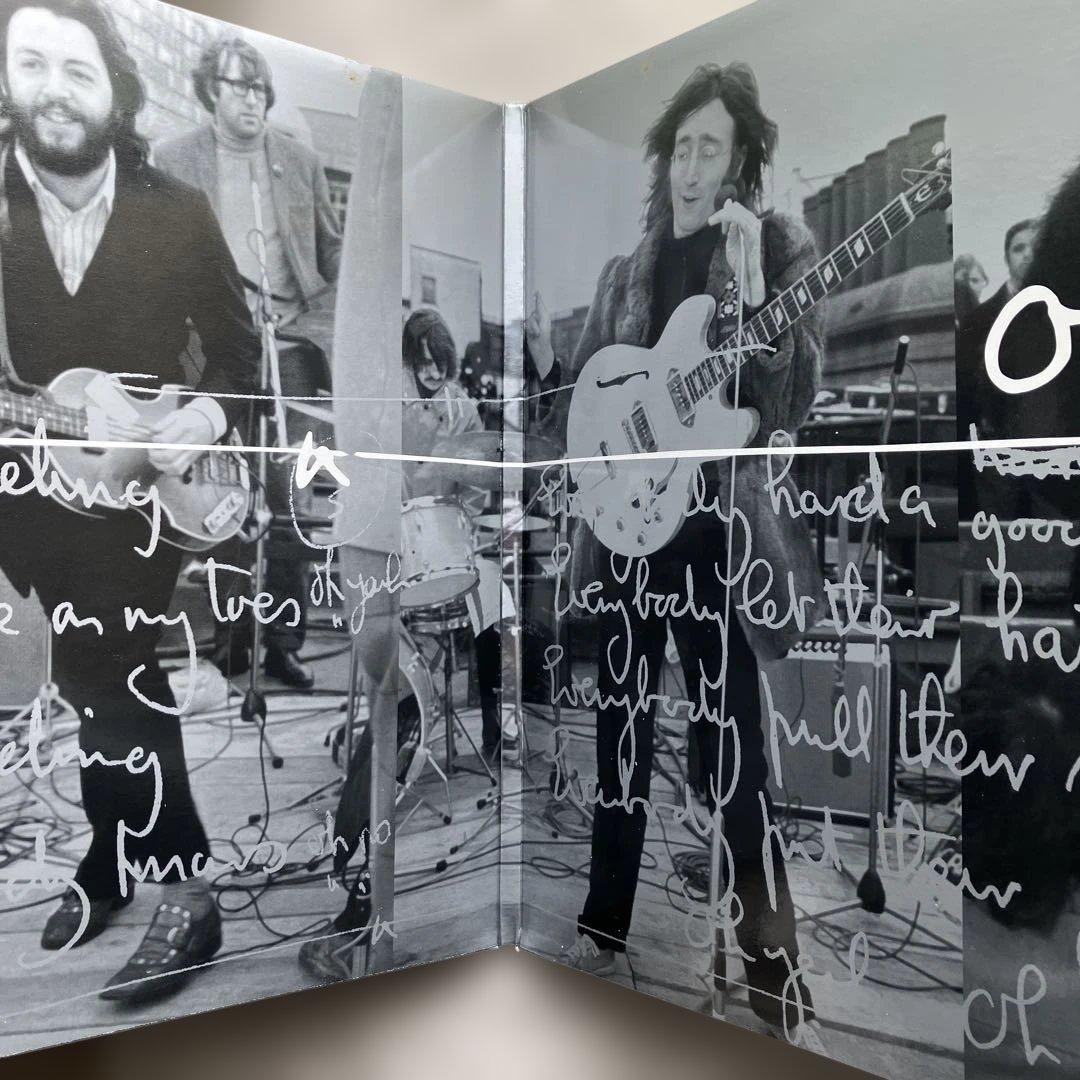 eling
as my toes oh yeah
eling
knows oh no
hard a
Everybody let their
Everybody pull their
Everybody put their
Oh yeah
O
good
ha
Oh